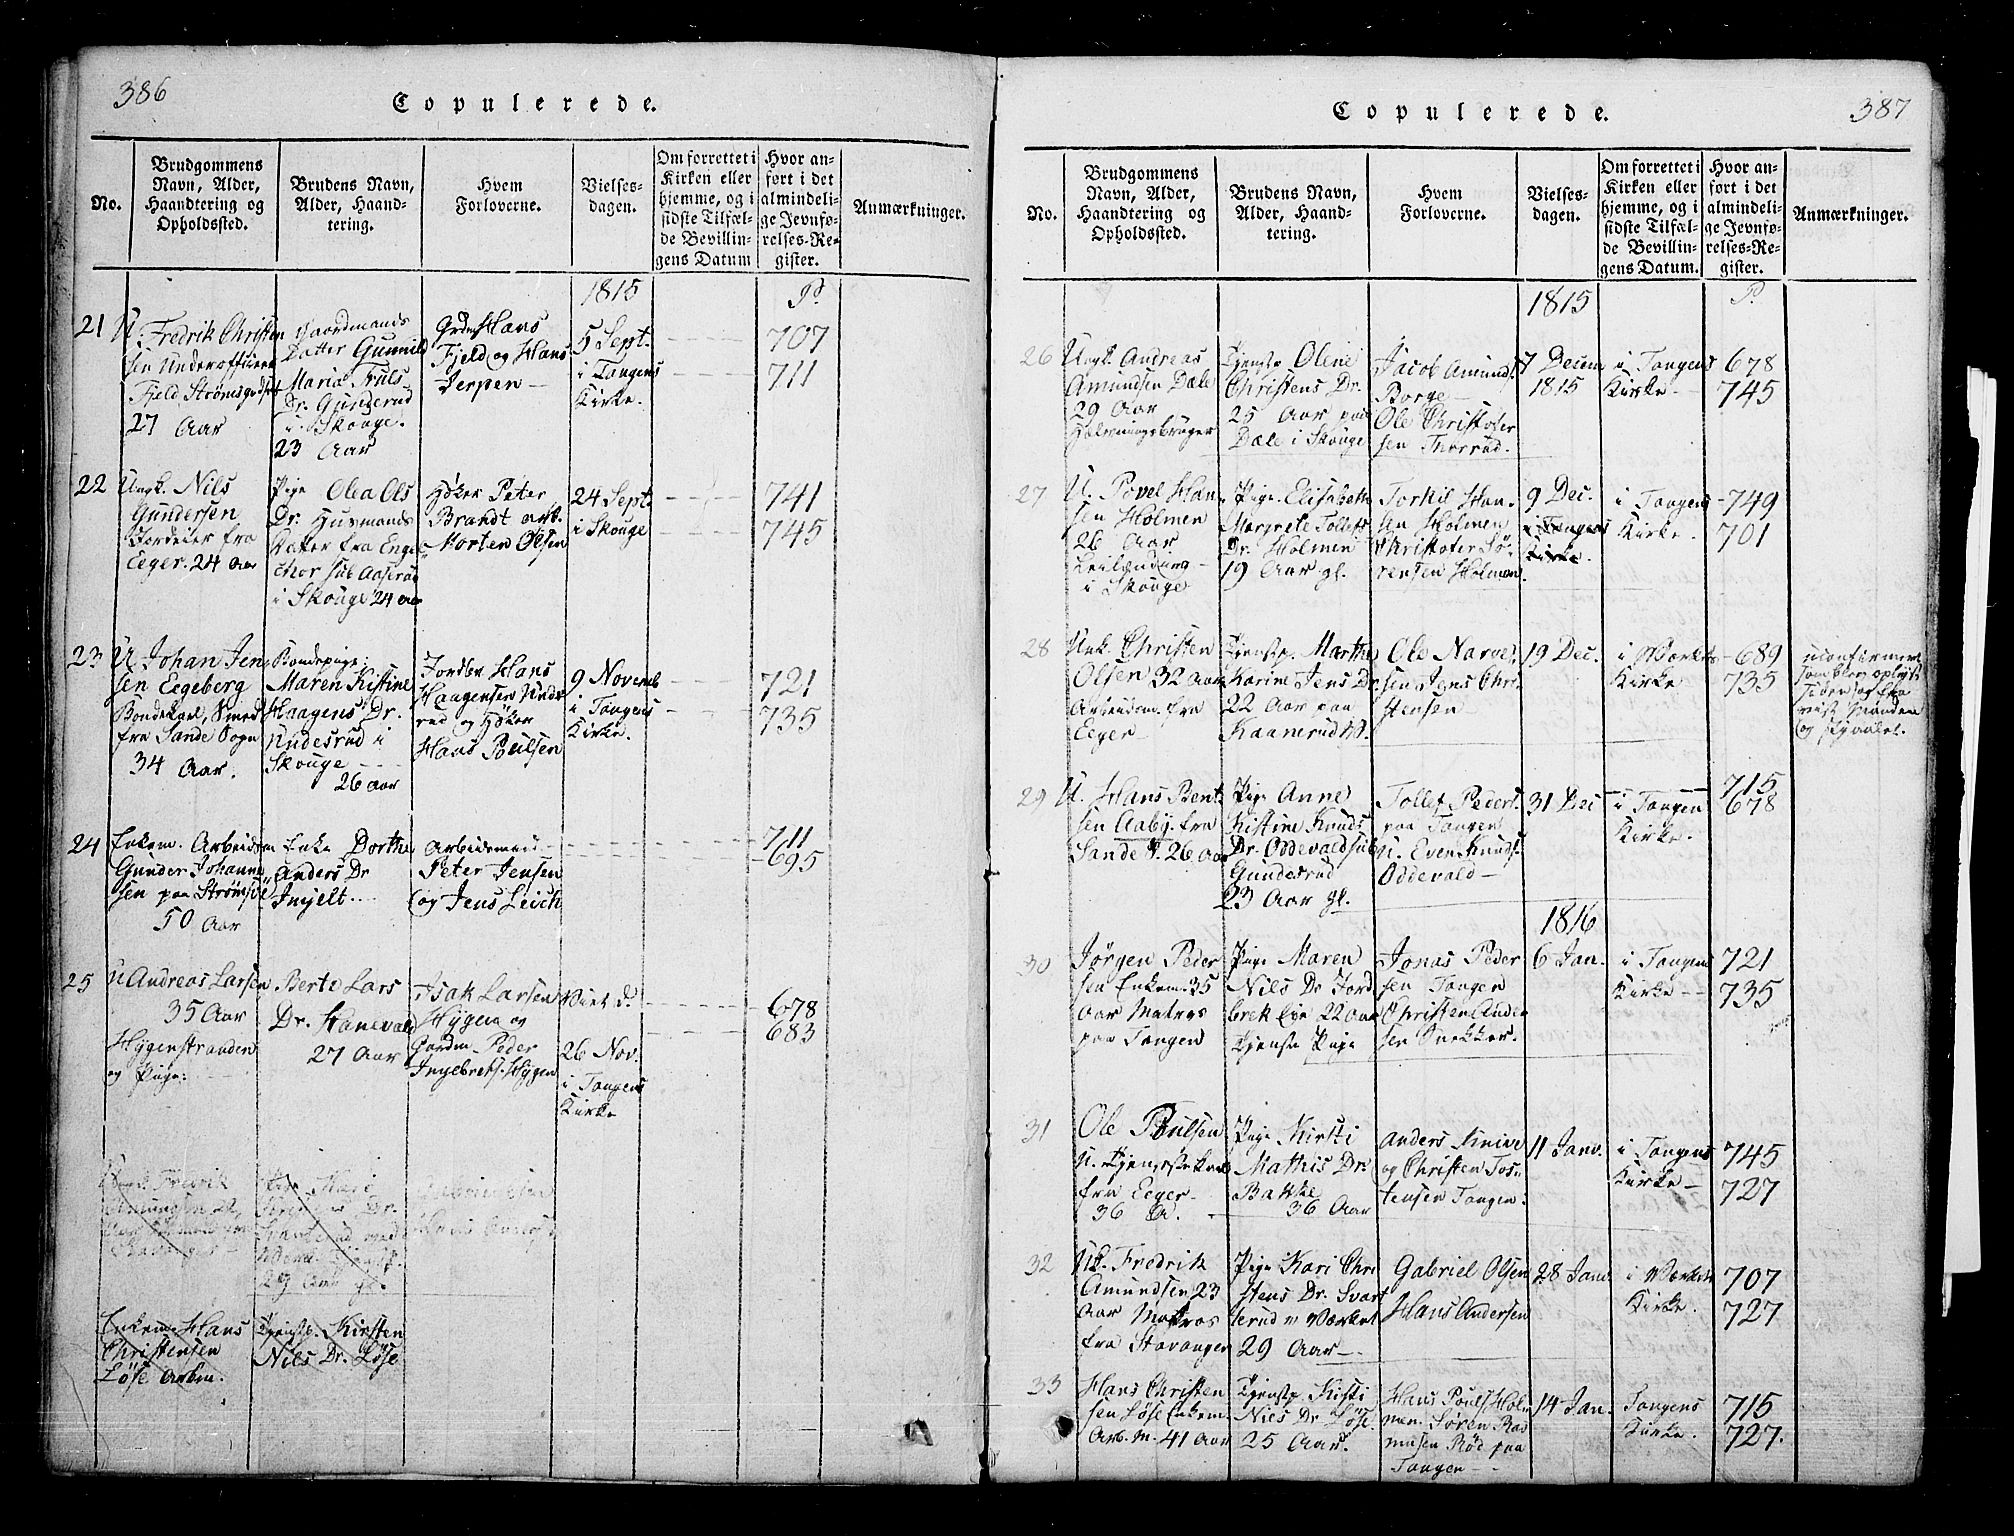 386
Copulerede.
No.
Brudgommens
Navn, Alder,
Haandtering og
Opholdssted.
Brudens Navn,
Alder, Haand-
tering.
Hvem
Forloverne.
Vielses-
dagen.
Om forrettet i
Kirken eller
hjemme, og i
sidste Tilfæl-
de Bevillin-
gens Datum
Hvor an-
ført i det
almindeli-
ge Jevnfø-
relses-Re-
gister.
Anmærkninger.
1815
21
U. Fredrik Christen
sen Underofficeer
Fjeld Strømsgodset
27 Aar
Gaardmands
Datter Gunnild
Maria Truls
Dr. Gunderud
i Skouge.
23 Aar
Hans
Fjeld og Hans
Jerpen
5 Sept.
i Tangens
Kirke.
707
711
22
Ungk. Nils
Gundersen
fra
Eeger. 24 Aar
Pige Olea Ols
Dr. Huusmands
Datter fra
Aaserud
i Skouge 24 Aar
Høker Peter
Brandt
Morten Olsen
24 Sept.
i Skouge
741
745
23
U Johan Jen
sen Eegeberg
Bondekarl, Smed
fra Sande Sogn
34 Aar.
Bondepige:
Maren Kistine
Haagens Dr.
i
Skouge
26 aar
Hans
Haagensen
rud og Høker
Hans Poulsen
9 Novemb
i Tangens
Kirke.
721
735
24
Enkem. Arbeidsm
Gunder Johanne
sen paa Strømsøe
50 Aar
Enke Dorthe
Anders Dr
Arbeidsmand
Peter Jensen
og Jens
711
695
25
U Andreas Larsen
35 Aar
Hygenstranden
og Pige:
Berte Lars
Dr.
27 Aar
Isak Larsen
Hygen og
Gaardm. Peder
Ingebrets. Hygen
Viet d.
26 Nov.
i Tangens
Kirke
678
683
Ungk. Fredrik
Amundsen
Pige Kari
29 Aar gl.
Enkem. Hans
Christensen
Løse Arbm.
Tjenstp. Kirsten
Nils Dr. Løse
387
Copulerede.
No.
Brudgommens
Navn, Alder,
Haandtering og
Opholdssted.
Brudens Navn,
Alder, Haand-
tering.
Hvem
Forloverne.
Vielses-
dagen.
Om forrettet i
Kirken eller
hjemme, og i
sidste Tilfæl-
de Bevillin-
gens Datum.
Hvor an-
ført i det
almindeli-
ge Jevnfø-
relses-Re-
gister.
Anmærkninger.
1815
26
Ungk. Andreas
Amundsen Dale
29 Aar
Tjenstp Oline
Christens Dr.
25 Aar paa
Dale i Skouge
Jacob Amunds.
Borge
Ole Christofer
sen Thorrud.
7 Decem
1815
i Tangens
Kirke
678
745
27
U. Povel Han
sen Holmen
26 Aar
i Skouge
Pige Elisabeth
Margrete Tollefs
Dr. Holmen
19 Aar gl.
Torkil Han
sen Holmen
Christofer Sø-
rensen Holmen
9 Dec.
i Tangens
Kirke
i Tangens
Kirke.
749
701
28
Unk. Christen
Olsen 32 aar
Arbeidsm. fra
Eeger
Tjenstp. Marthe
Karine Jens Dr.
22 Aar paa
Kaanerud
Ole Narve
sen Jens Chri
stensen
19 Dec.
i Værkets
Kirke
689
735
29
U. Hans Bent
sen Aaby. fra
Sande P. 26 aar
Pige Anne
Kistine Knuds
Dr. Oddevald sub
Gunderud
23 Aar gl.
Tollef Peders.
paa Tangen
U. Even Knuds.
Oddevald
31 Dec
i Tangen
Kirke.
715
678
1816
30
Jørgen Peder
sen Enkem. 35
aar Matros
paa Tangen
Pige Maren
Nils Dr Jord
brek Eje 22 aar
Tjenste Pige
Jonas Peder
sen Tangen
Christen Ander
sen Snekker.
6 Jan.
i Tangens
Kirke
721
735
31
Ole Poulsen
U. Tjenestekarl
fra Eeger
36 A.
Pige Kirsti
Mathis Dr.
Bakke
36 Aar
Anders Knive
og Christen Tos
tensen Tangen.
11 Janv.
i Tangens
Kirke
745
727
32
Uk. Fredrik
Amundsen 23
aar Matros
fra Stavanger
Pige Kari Chri
stens Dr. Svart
terud v Værket
29 Aar
Gabriel Olsen
Hans Andersen
28 Janv.
i Værkets
Kirke.
707
727
33
Hans Christen
sen Løse Enkem.
Arb.M. 41 Aar
Tjenstp Kisti
Niels Dr. Løse.
25 Aar.
Hans Pouls Hol
men. Søren Ras
musen Rød paa
Tangen
14 Jan.
Tangens
Kirke.
715
727.